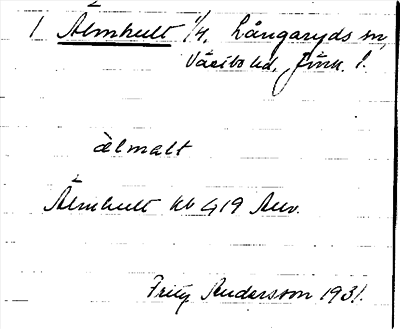 1 Älmhult 1/4, Långaryds sn,
Västbo hd, Jönk. l.
älmalt
Älmhult kb 419 Auv.
Fritz Andersson 1931.